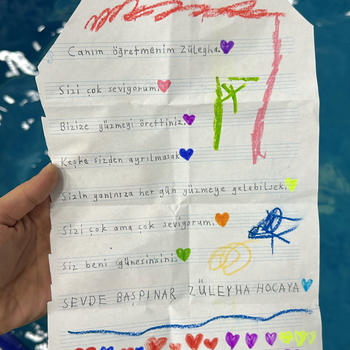 Canım öğretmenim Züleyha.
Sizi çok seviyorum.
Bizize yüzmeyi örettiniz.
Keşke sizden ayrılmasak
Sizin yanınıza her gün yüzmeye gelebilsek.
Sizi çok ama çok seviyorum.
Siz beni günesinsiniz.
SEVDE BAŞPINAR ZÜLEYHA HOCAYA